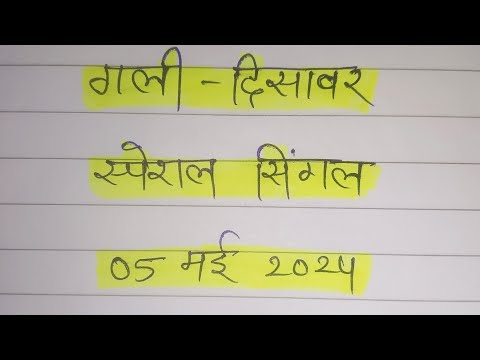 गली - दिसावर
स्पेशल सिंगल
05 मई 2024